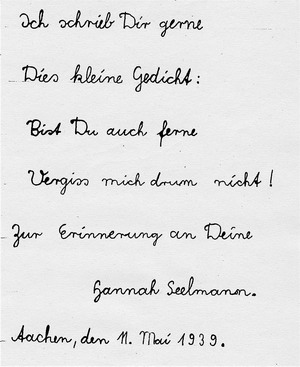 Ich schrieb Dir gerne
Dies kleine Gedicht:
Bist Du auch ferne
Vergiss mich drum nicht!
Zur Erinnerung an Deine
Hannah Seelmann.
Aachen, den 11. Mai 1939.